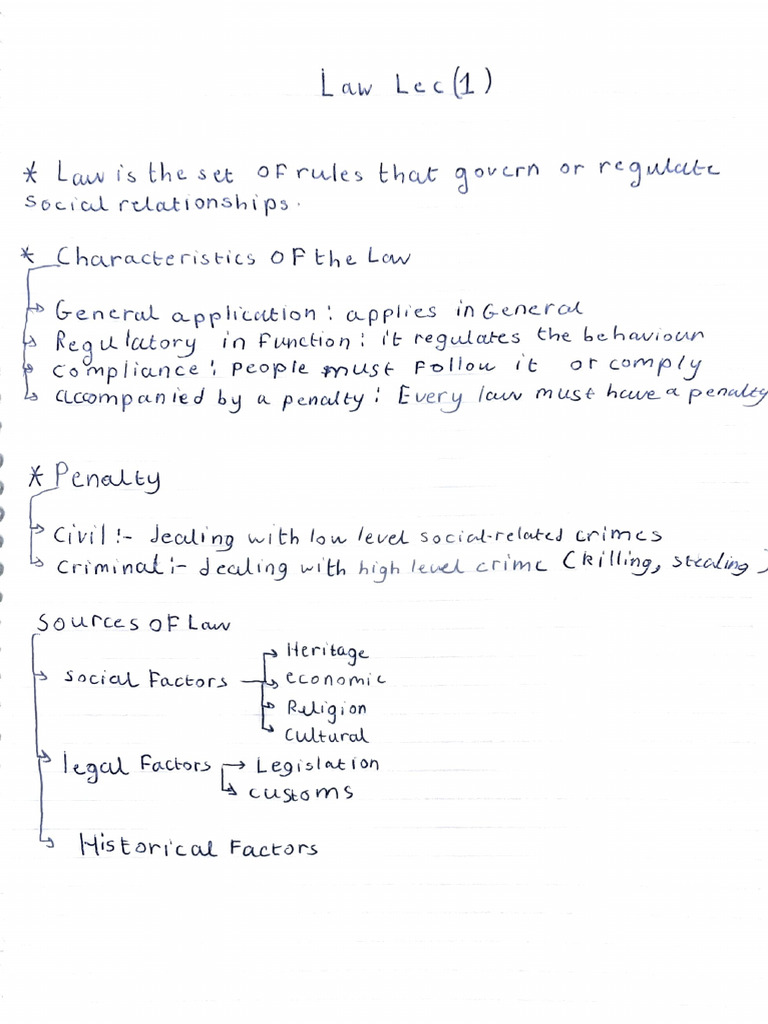 Law Lec(1)
* Law is the set of rules that govern or regulate
social relationships.
* Characteristics of the Law
General application : applies in General
Regulatory in Function : it regulates the behaviour
compliance : people must Follow it or comply
accompanied by a penalty : Every law must have a penalty
* Penalty
Civil :- dealing with low level social-related crimes
Criminal :- dealing with high level crime (killing, stealing)
Sources of Law
Social Factors
Heritage
economic
Religion
Cultural
legal Factors
Legislation
customs
Historical Factors